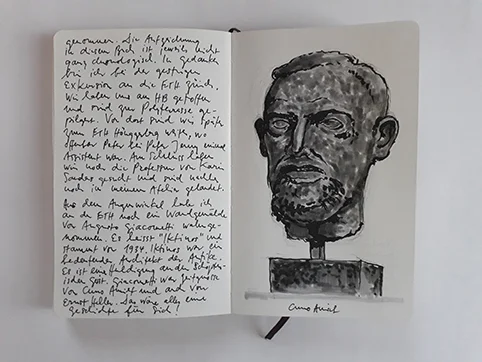 genommen. Die Aufzeichnung
in diesem Buch ist jeweils nicht
ganz chronologisch. In Gedanken
bin ich bei der gestrigen
Exkursion an die ETH Zürich.
Wir haben uns am HB getroffen
und sind zur Polyterrasse ge-
pilgert. Von dort sind wir später
zum ETH Hönggerberg, wo
offenbar Peter bei Peter Jenny
Assistent war. Am Schluss haben
wir noch die Professur von Karin
Sander gesucht und sind
noch in meinem Atelier gelandet.
Aus dem Augenwinkel habe ich
an der ETH noch ein Wandgemälde
von Augusto Giacometti wahrge-
nommen. Es heisst "Iktinos" und
stammt von 1934. Iktinos war ein
bedeutender Architekt der Antike.
Es ist eine Huldigung an den Schöpfe-
rischen Geist. Giacometti war Zeitgenosse
von Cuno Amiet und auch von
Ernst Heller. Das wäre alles eine
Geschichte für sich!
Cuno Amiet